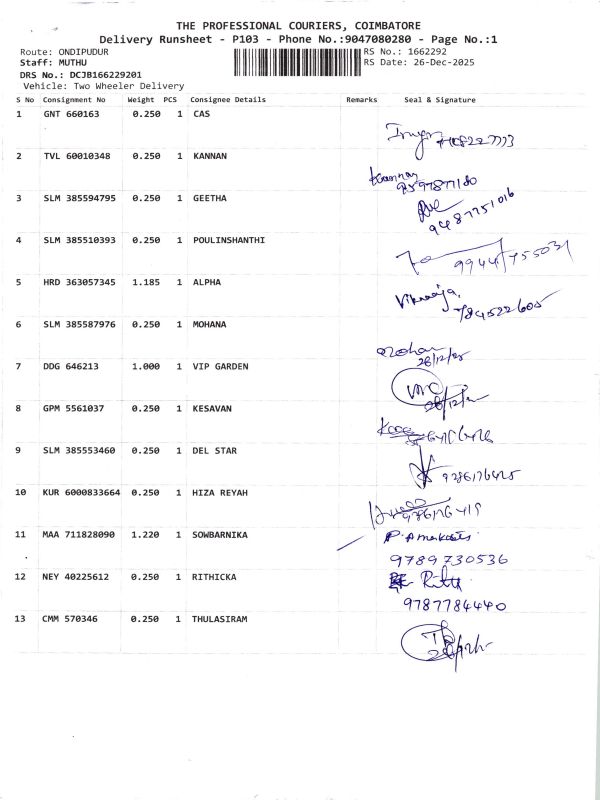 THE PROFESSIONAL COURIERS, COIMBATORE
Delivery Runsheet - P103 - Phone No.:9047080280 - Page No.:1
Route: ONDIPUDUR RS No.: 1662292
Staff: MUTHU RS Date: 26-Dec-2025
DRS No.: DCJB166229201
Vehicle: Two Wheeler Delivery
S No Consignment No Weight PCS Consignee Details Remarks Seal & Signature
1 GNT 660163 0.250 1 CAS
2 TVL 60010348 0.250 1 KANNAN
Kannan
3 SLM 385594795 0.250 1 GEETHA
9487751016
4 SLM 385510393 0.250 1 POULINSHANTHI
9944755031
5 HRD 363057345 1.185 1 ALPHA
784522605
6 SLM 385587976 0.250 1 MOHANA
Mohan
26/12/25
7 DDG 646213 1.000 1 VIP GARDEN
8 GPM 5561037 0.250 1 KESAVAN
9 SLM 385553460 0.250 1 DEL STAR
10 KUR 6000833664 0.250 1 HIZA REYAH
11 MAA 711828090 1.220 1 SOWBARNIKA
9789730536
12 NEY 40225612 0.250 1 RITHICKA
9787784440
13 CMM 570346 0.250 1 THULASIRAM